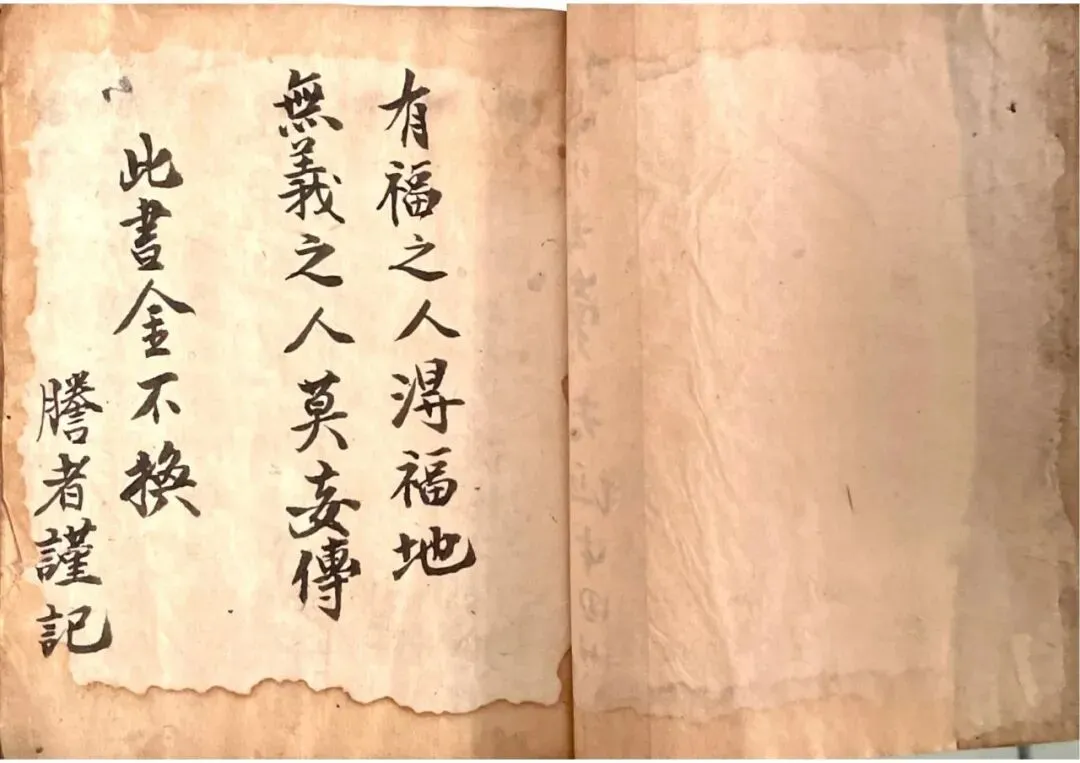 有福之人得福地
無義之人莫妄傳
此書金不換
謄者謹記